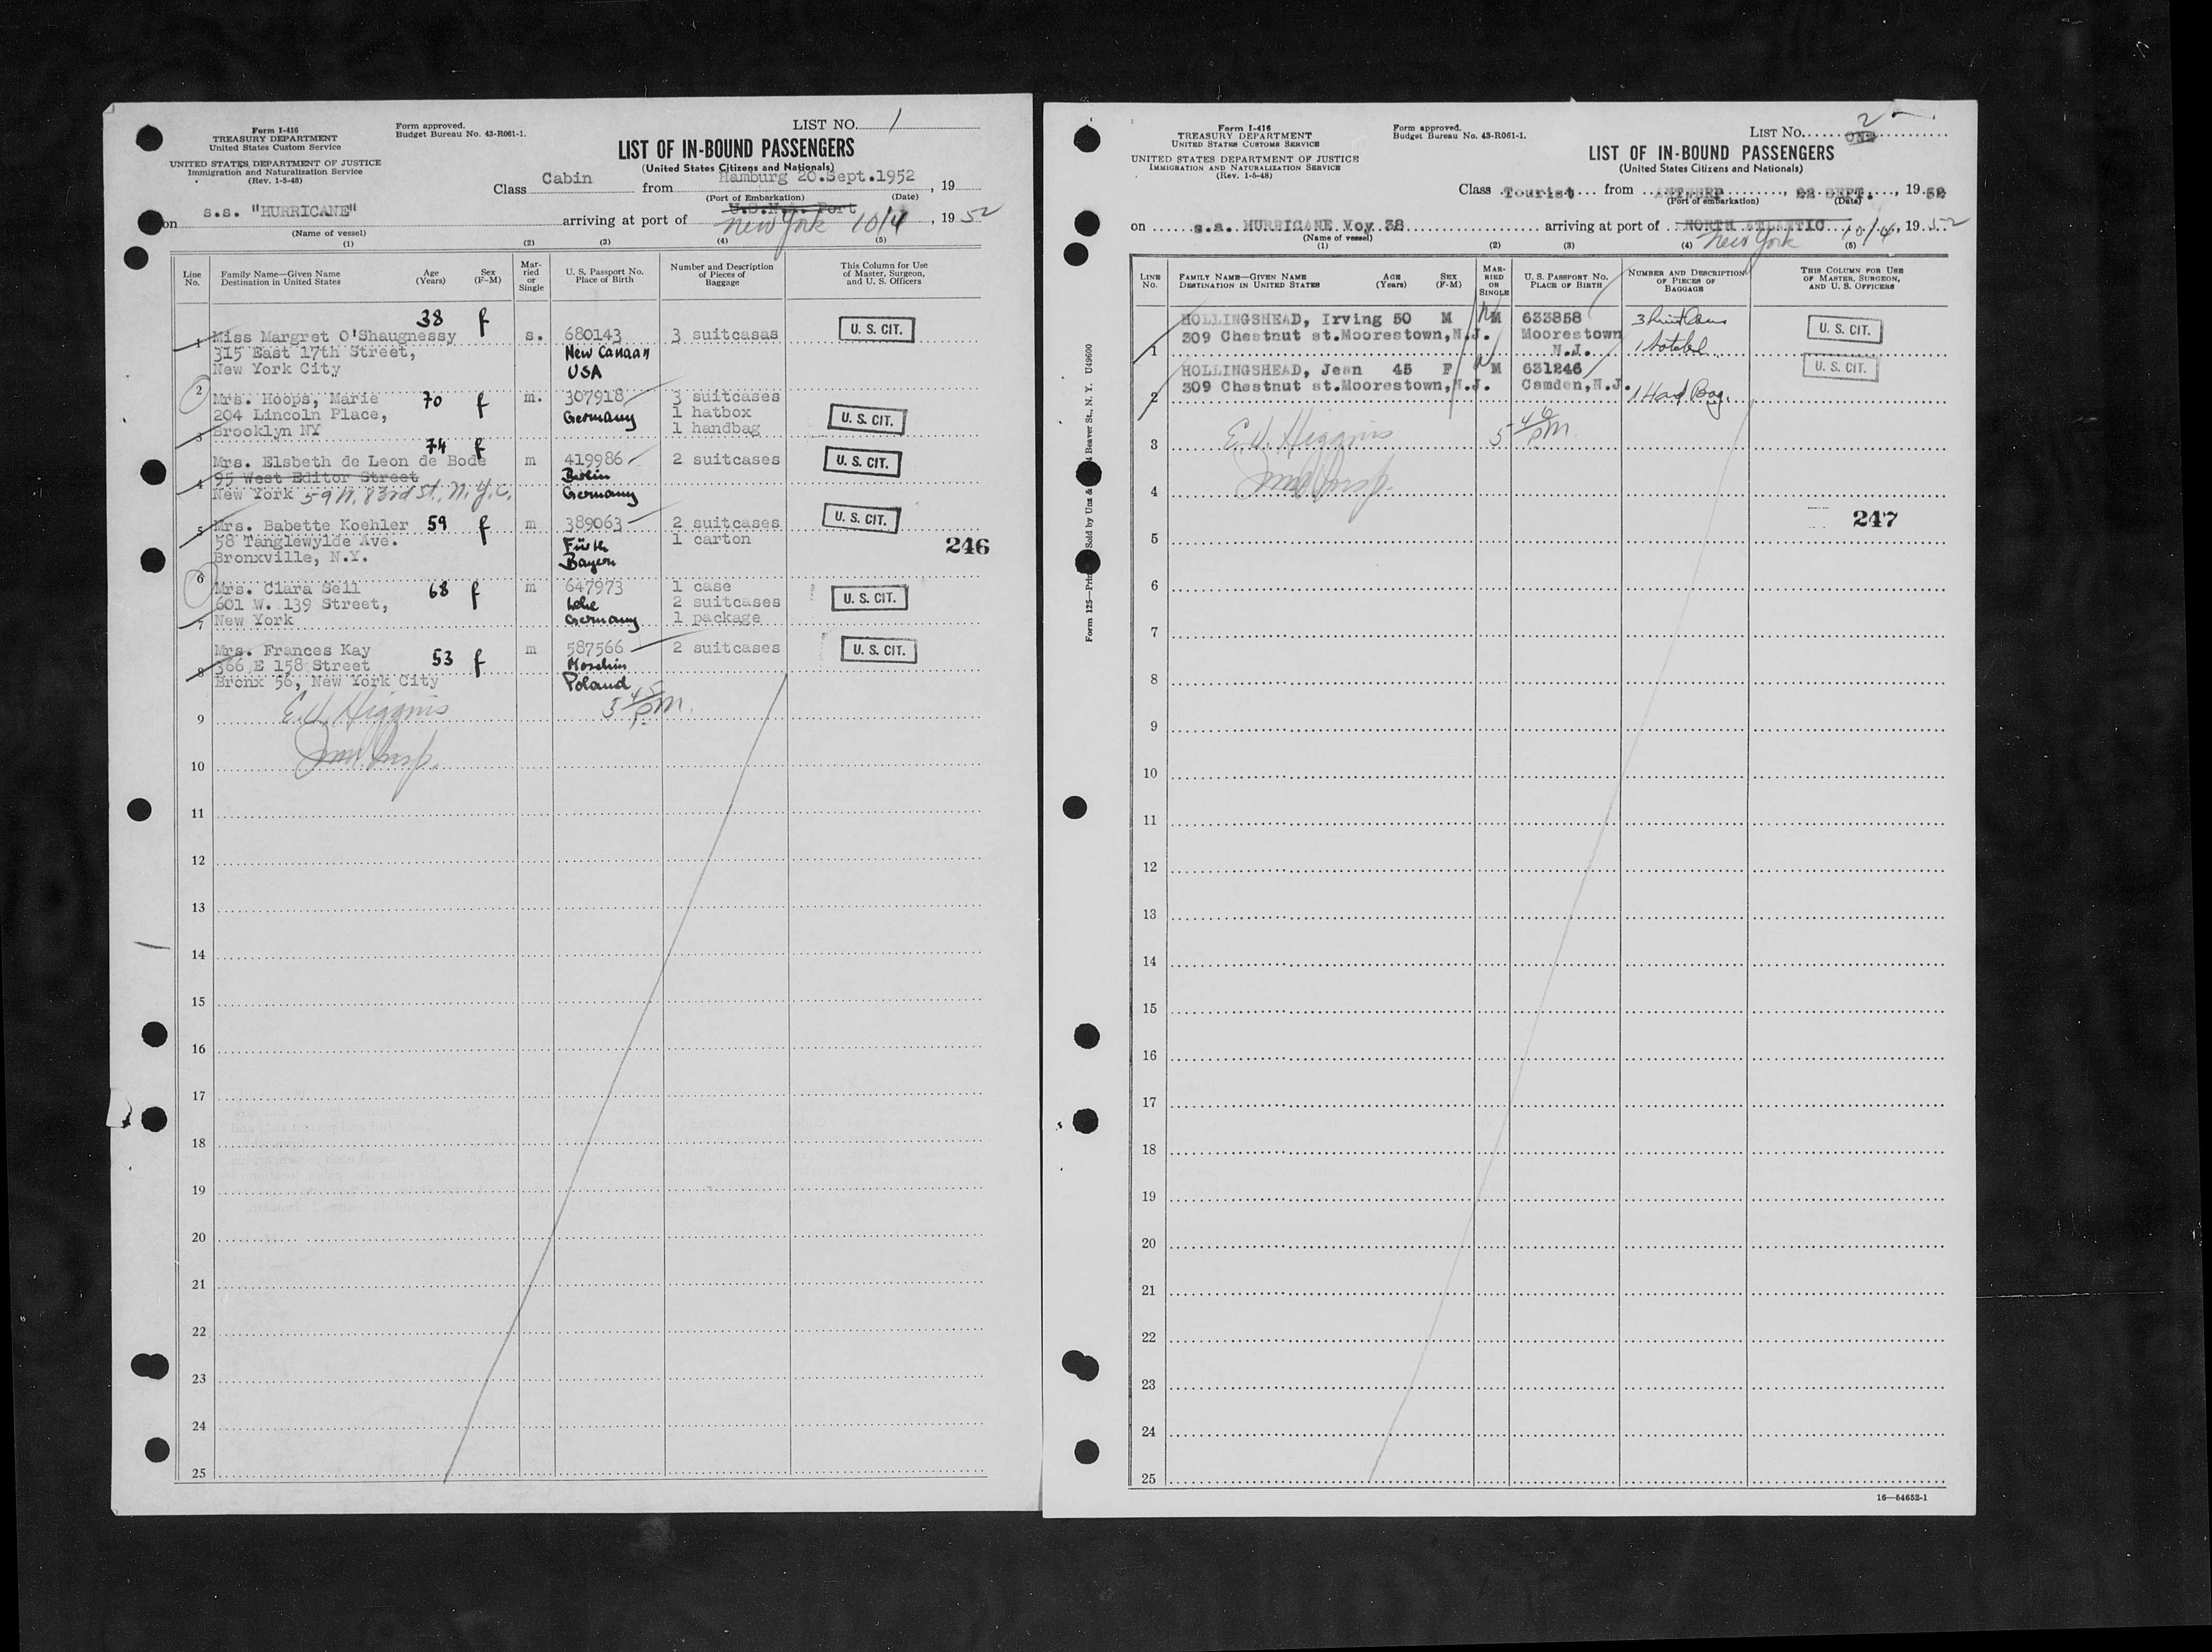 Form I-416
TREASURY DEPARTMENT
United States Custom Service
UNITED STATES DEPARTMENT OF JUSTICE
Immigration and Naturalization Service
(Rev. 1-5-48)
Form approved.
Budget Bureau No. 43-R061-1.
LIST NO. 1
LIST OF IN-BOUND PASSENGERS
(United States Citizens and Nationals)
Class Cabin from Hamburg 20.Sept.1952, 19
(Port of Embarkation) (Date)
on s.s. "HURRICANE" arriving at port of U.S.N.A. Port New York 10/4, 1952
(Name of vessel)
(1) (2) (3) (4) (5)
Line No.
Family Name—Given Name
Destination in United States
Age (Years)
Sex (F-M)
Married or Single
U. S. Passport No.
Place of Birth
Number and Description of Pieces of Baggage
This Column for Use of Master, Surgeon, and U. S. Officers
1 Miss Margret O'Shaugnessy 38 f s. 680143 3 suitcasas U. S. CIT.
315 East 17th Street, New Canaan
New York City USA
2 Mrs. Hoops, Marie 70 f m. 307918 3 suitcases
204 Lincoln Place, Germany 1 hatbox U. S. CIT.
3 Brooklyn NY 1 handbag
Mrs. Elsbeth de Leon de Bode 74 f m 419986 2 suitcases U. S. CIT.
4 95 West Editor Street Berlin
New York 59 W. 83rd St., N.Y.C. Germany
5 Mrs. Babette Koehler 59 f m 389063 2 suitcases U. S. CIT.
58 Tanglewylde Ave. Fürth 1 carton
Bronxville, N.Y. Bayern
246
6 Mrs. Clara Sell 68 f m 647973 1 case
601 W. 139 Street, Lehe 2 suitcases U. S. CIT.
7 New York Germany 1 package
Mrs. Frances Kay 53 f m 587566 2 suitcases U. S. CIT.
8 366 E 158 Street Moschin
Bronx 56, New York City Poland
9 E.V. Higgins 5 45 PM.
10 Imm. Insp.
11
12
13
14
15
16
17
18
19
20
21
22
23
24
25
Form I-416
TREASURY DEPARTMENT
UNITED STATES CUSTOMS SERVICE
UNITED STATES DEPARTMENT OF JUSTICE
IMMIGRATION AND NATURALIZATION SERVICE
(Rev. 1-5-48)
Form approved.
Budget Bureau No. 43-R061-1.
LIST No. ONE 2
LIST OF IN-BOUND PASSENGERS
(United States Citizens and Nationals)
Class Tourist from ANTWERP, 22 SEPT., 1952
(Port of embarkation) (Date)
on s.s. HURRICANE Voy 38 arriving at port of NORTH ATLANTIC New York 10/4, 1952
(Name of vessel)
(1) (2) (3) (4) (5)
LINE No.
FAMILY NAME—GIVEN NAME
DESTINATION IN UNITED STATES
AGE (Years)
SEX (F-M)
MARRIED OR SINGLE
U. S. PASSPORT NO.
PLACE OF BIRTH
NUMBER AND DESCRIPTION OF PIECES OF BAGGAGE
THIS COLUMN FOR USE OF MASTER, SURGEON, AND U. S. OFFICERS
HOLLINGSHEAD, Irving 50 M M 633858 3
309 Chestnut st.Moorestown,N.J. Moorestown U. S. CIT.
1 N.J. 1
HOLLINGSHEAD, Jean 45 F M 631246 U. S. CIT.
309 Chestnut st.Moorestown,N.J. Camden,N.J. 1 Hand Bag.
2
3 E.V. Higgins 5 46 PM.
4 Imm Insp.
247
5
6
7
8
9
10
11
12
13
14
15
16
17
18
19
20
21
22
23
24
25
16—54652-1
Beaver St., N. Y. U49600
Sold by Unz &
Form 125—